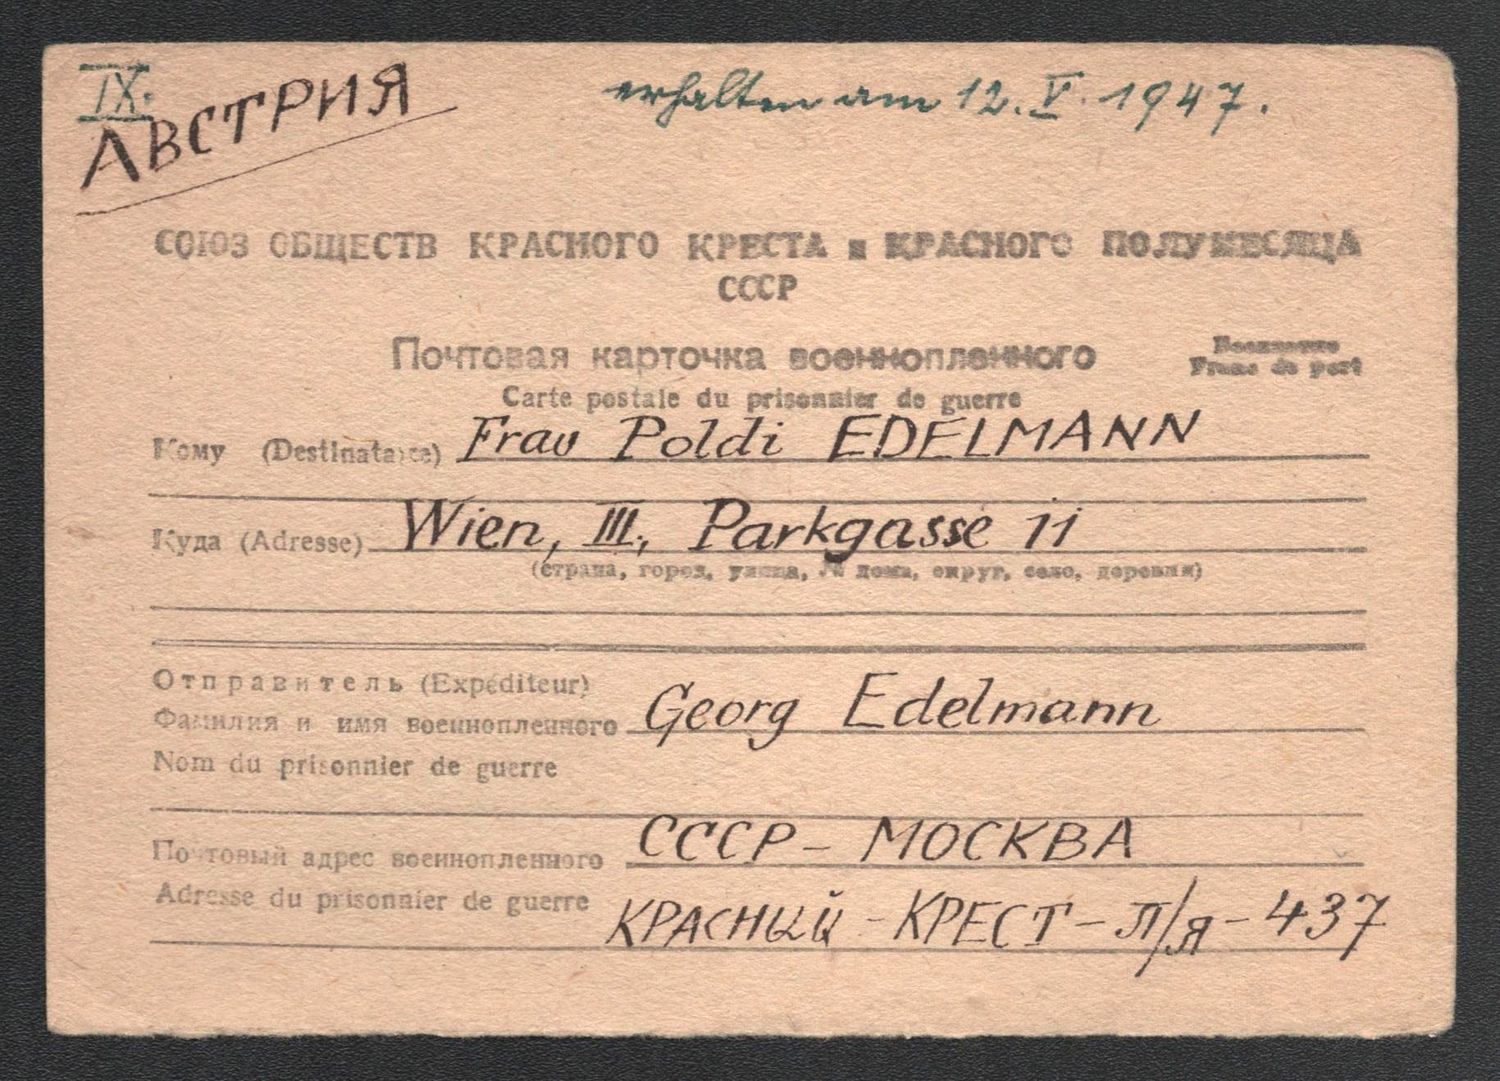 IX.
АВСТРИЯ
erhalten am 12. V. 1947.
СОЮЗ ОБЩЕСТВ КРАСНОГО КРЕСТА и КРАСНОГО ПОЛУМЕСЯЦА
СССР
Почтовая карточка военнопленного
Бесплатно
Franc de port
Carte postale du prisonnier de guerre
Кому (Destinataire) Frau Poldi EDELMANN
Куда (Adresse) Wien, III., Parkgasse 11
(страна, город, улица, № дома, округ, село, деревня)
Отправитель (Expéditeur)
Фамилия и имя военнопленного Georg Edelmann
Nom du prisonnier de guerre
Почтовый адрес военнопленного СССР - МОСКВА
Adresse du prisonnier de guerre КРАСНЫЙ - КРЕСТ - П/Я - 437